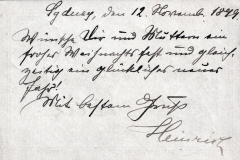 Sydney, den 12. Novemb. 1899
Wünsche Dir und Muttern ein
frohes Weihnachtsfest und gleich-
zeitig ein glückliches neues
Jahr!
Mit bestem Gruß
Heinrich